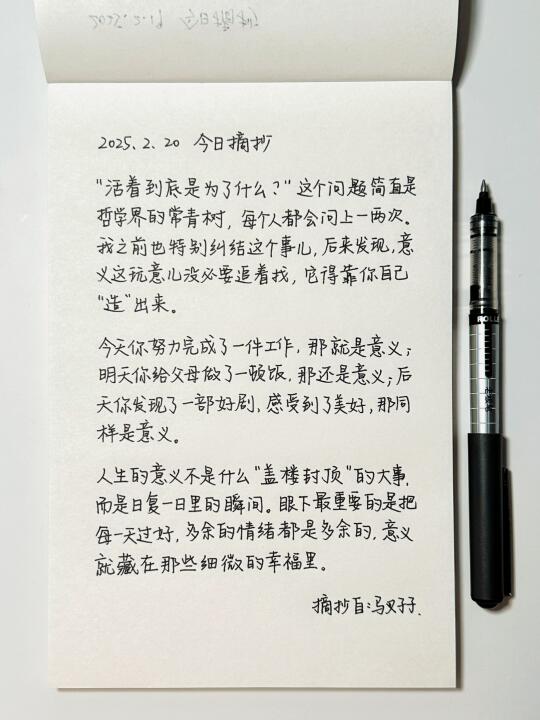 2025.2.19 今日摘抄
2025.2.20 今日摘抄
“活着到底是为了什么?”这个问题简直是
哲学界的常青树,每个人都会问上一两次。
我之前也特别纠结这个事儿,后来发现,意
义这玩意儿没必要追着找,它得靠你自己
“造”出来。
今天你努力完成了一件工作,那就是意义;
明天你给父母做了一顿饭,那还是意义;后
天你发现了一部好剧,感受到了美好,那同
样是意义。
人生的意义不是什么“盖楼封顶”的大事,
而是日复一日里的瞬间。眼下最重要的是把
每一天过好,多余的情绪都是多余的,意义
就藏在那些细微的幸福里。
摘抄自:冯
ROLLE